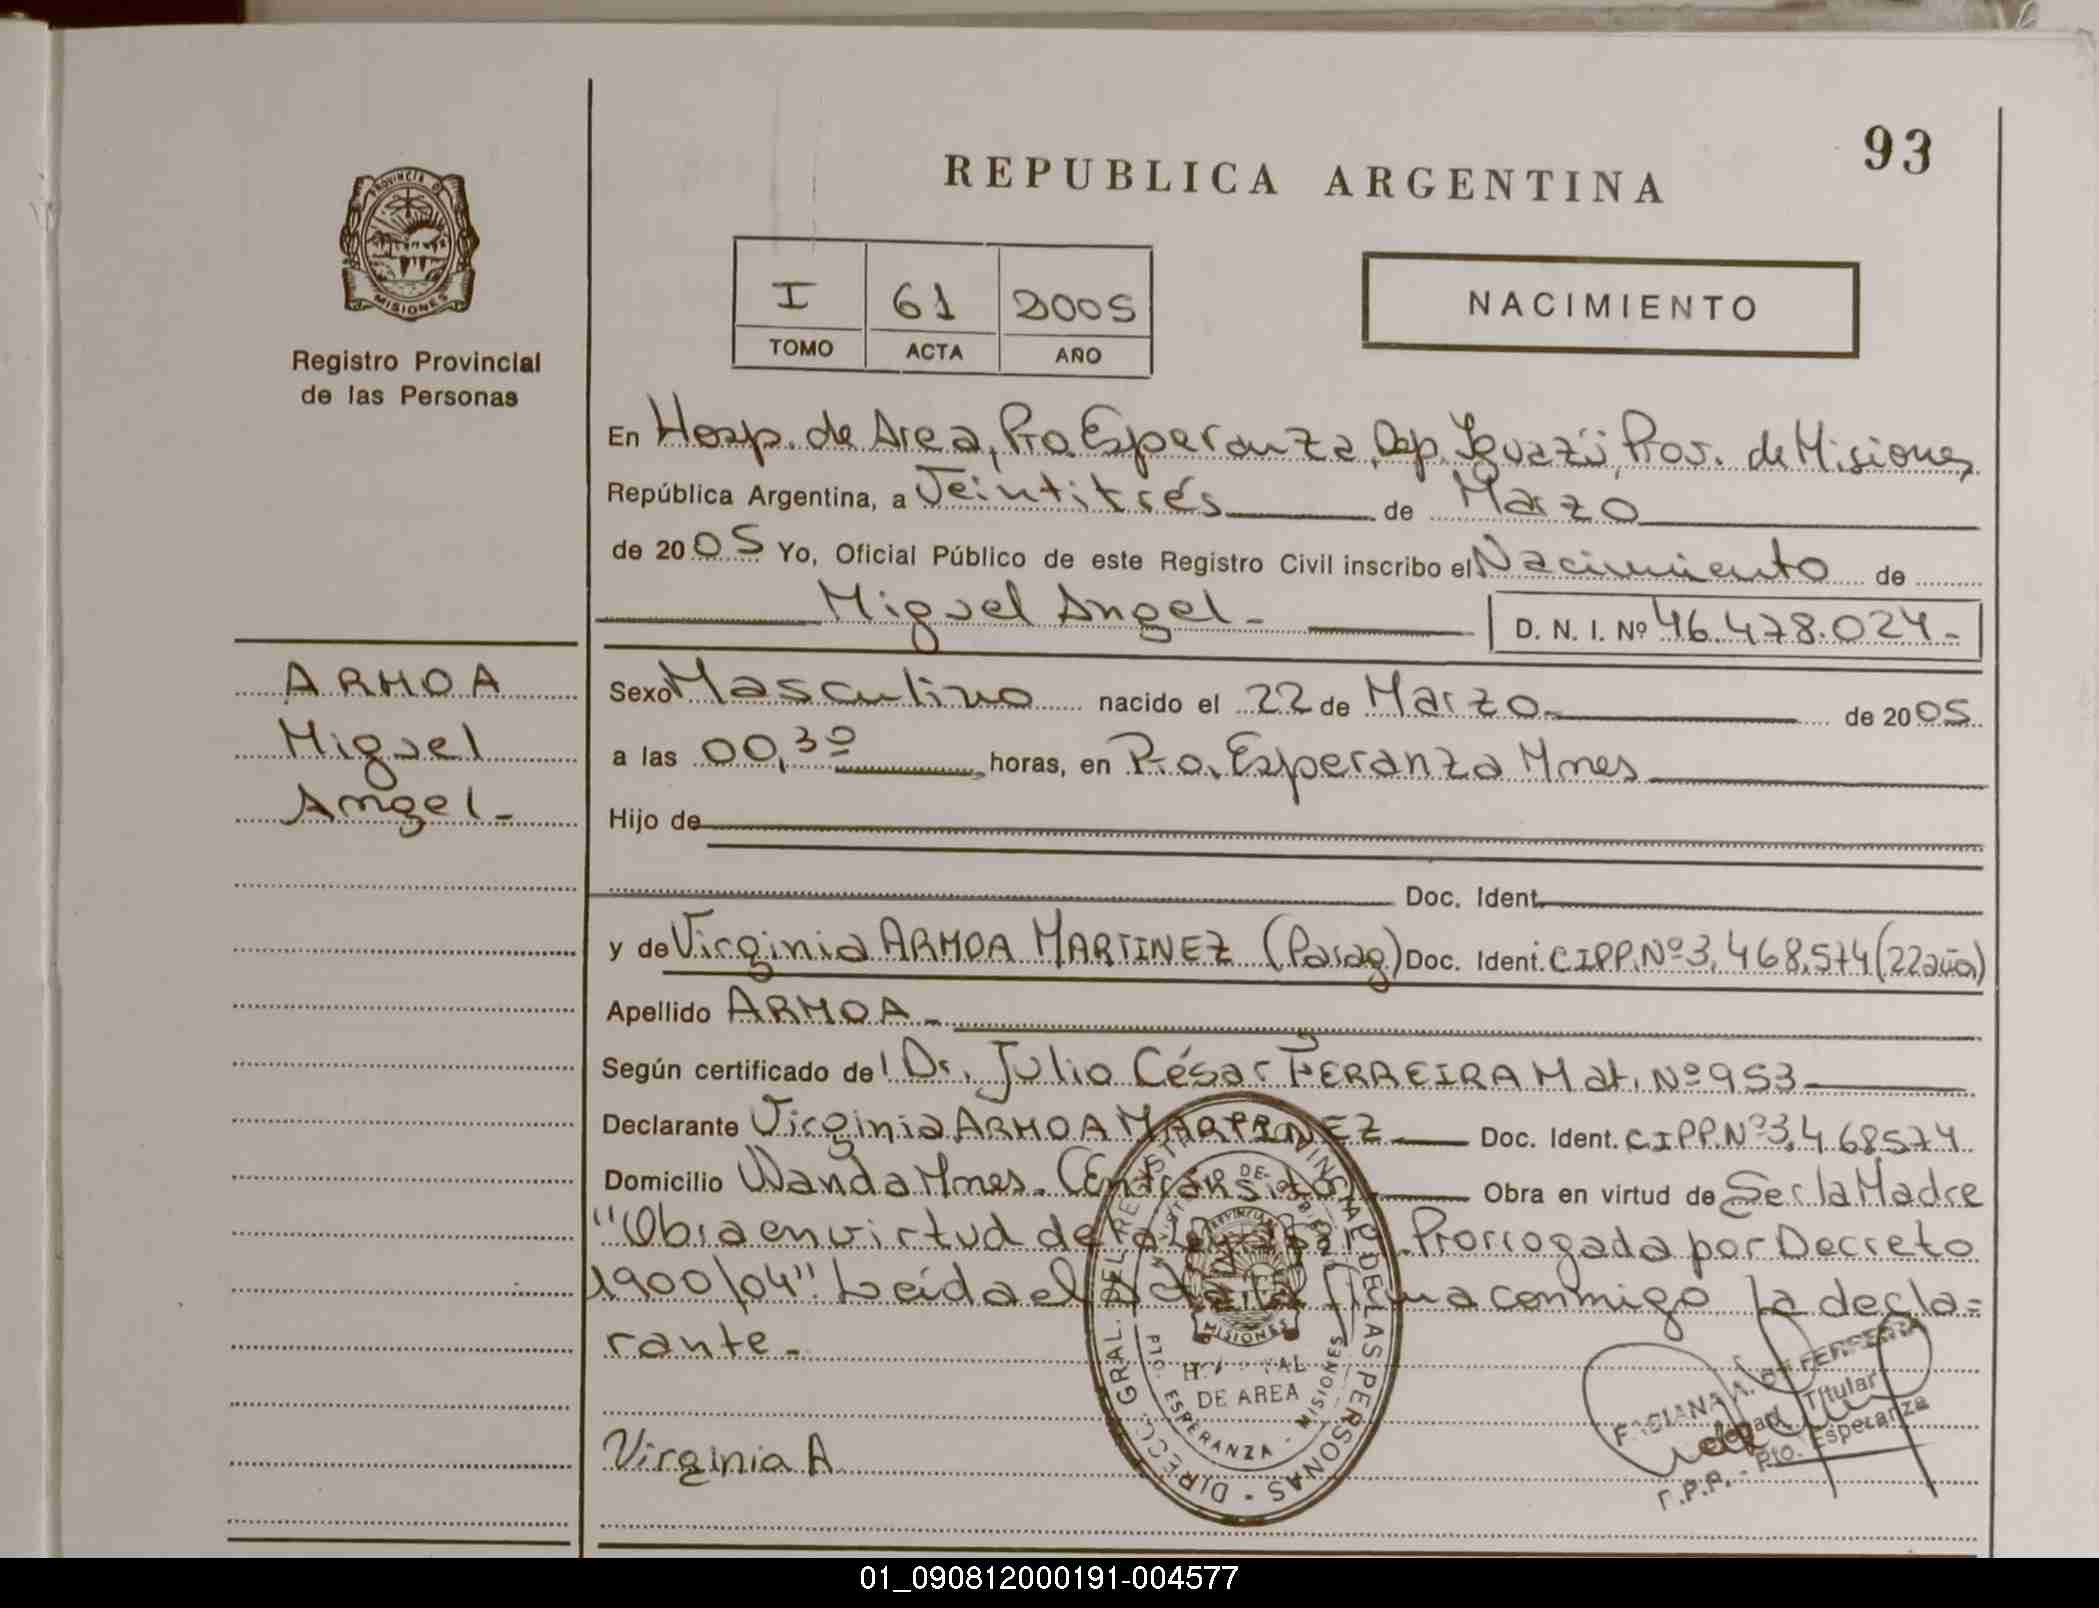 93
REPUBLICA ARGENTINA
PROVINCIA DE
MISIONES
Registro Provincial
de las Personas
I 61 2005
TOMO ACTA AÑO
NACIMIENTO
En Hosp. de Area, Pto. Esperanza, Dep. Iguazú, Prov. de Misiones
República Argentina, a Veintitrés de Marzo
de 2005 Yo, Oficial Público de este Registro Civil inscribo el Nacimiento de
Miguel Angel - D. N. I. Nº 46.478.024-
ARMOA
Miguel
Angel-
Sexo Masculino nacido el 22 de Marzo de 2005
a las 00,30 horas, en Pto. Esperanza Mnes
Hijo de
Doc. Ident.
y de Virginia ARMOA MARTINEZ (Parag) Doc. Ident. CIPP.Nº3,468,574 (22años)
Apellido ARMOA-
Según certificado del Dr. Julio César FERREIRA Mat. Nº 953
Declarante Virginia ARMOA MARTINEZ Doc. Ident. CIPP.Nº3,468574
Domicilio Wanda Mnes. (En tránsito) Obra en virtud de Ser la Madre
"Obra en virtud de la Prorrogada por Decreto
1900/04". Leída el Acta la firma conmigo la decla=
rante-
Virginia A
DIRECC. GRAL. DEL REGISTRO PROVINCIAL DE LAS PERSONAS
MISIONES
HOSPITAL
DE AREA
PTO. ESPERANZA - MISIONES
FABIANA A. DE FERREIRA
Titular
R.P.P. - Pto. Esperanza
01_090812000191-004577